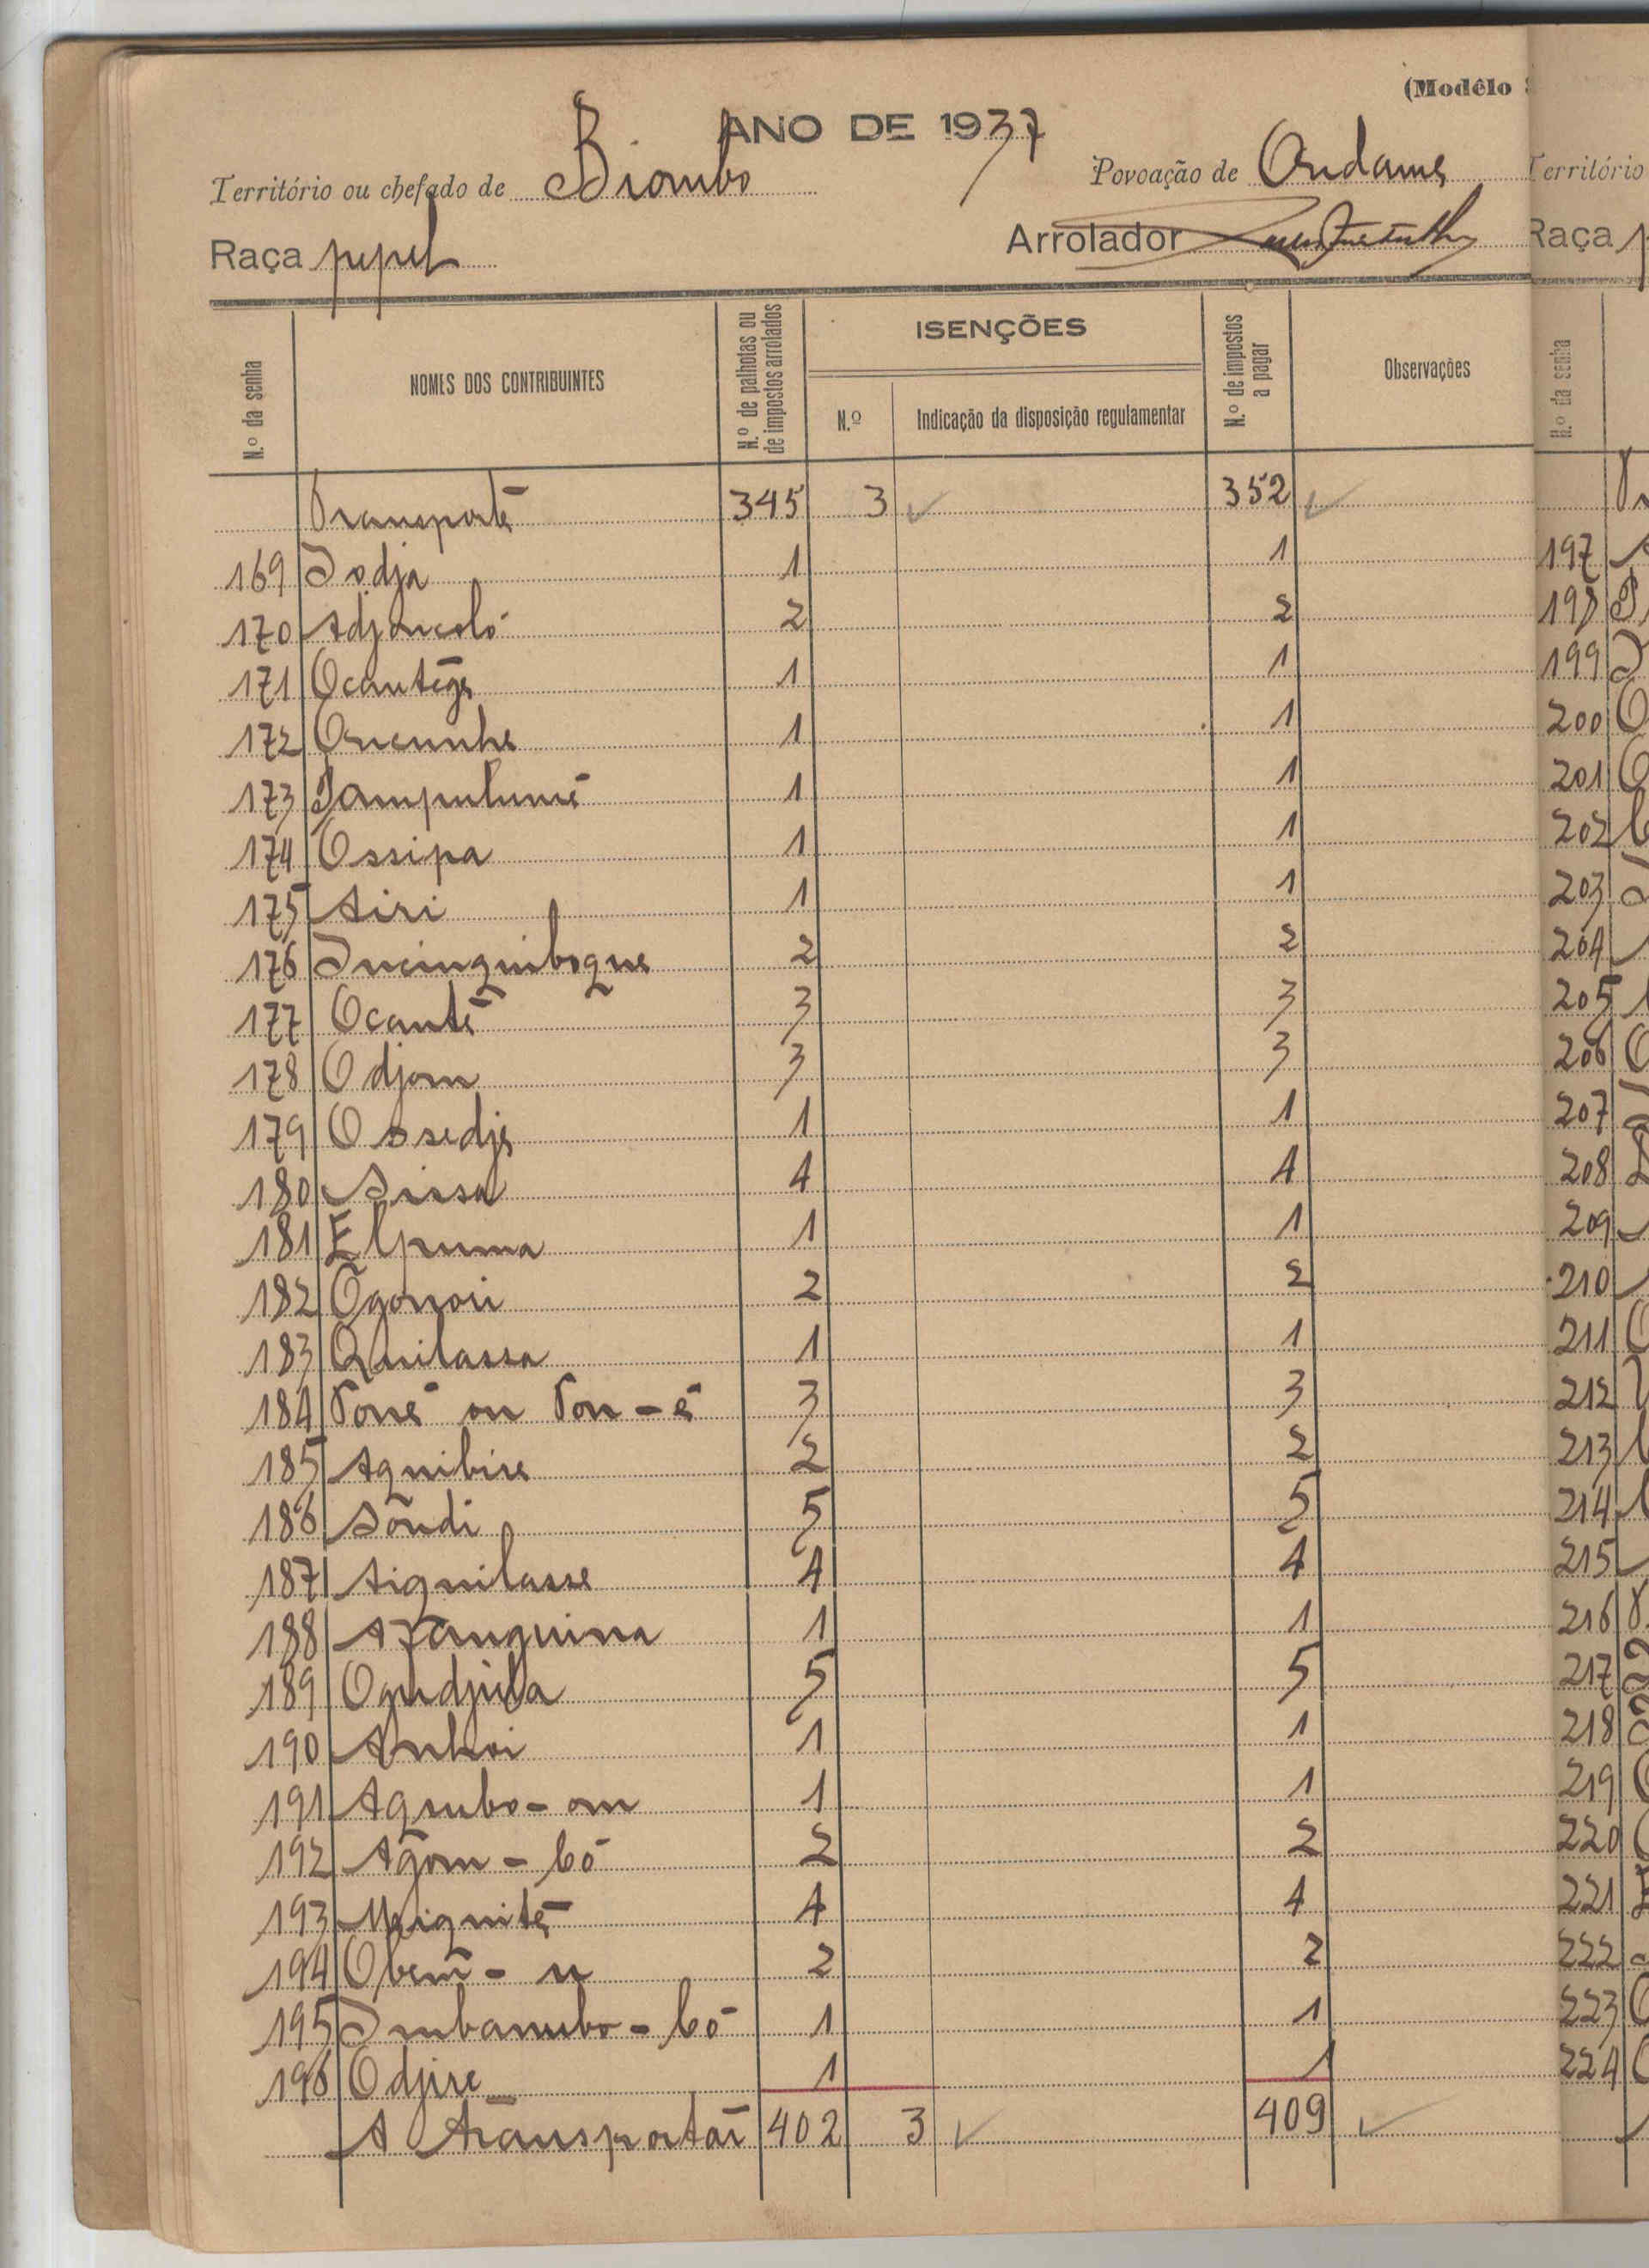 (Modêlo
ANO DE 1937
Território ou chefado de Biombo Povoação de Ondame
Raça pepel Arrolador
N.º da senha NOMES DOS CONTRIBUINTES N.º de palhotas ou de impostos arrolados ISENÇÕES N.º Indicação da disposição regulamentar N.º de impostos a pagar Observações
Transporte 345 3 352
169 Dodja 1 1
170 Adjoncoló 2 2
171 Ocantêge 1 1
172 Oncunhe 1 1
173 Jampulumé 1 1
174 Ossipa 1 1
175 Airi 1 1
176 Incinquiboque 2 2
177 Ocanté 3 3
178 Odjom 3 3
179 Ossedje 1 1
180 Sissa 4 4
181 Elpuma 1 1
182 Ogonoii 2 2
183 Quilassa 1 1
184 Toné ou Ton-é 3 3
185 Aquibire 2 2
186 Sondi 5 5
187 Aiquilasse 4 4
188 Azanquina 1 1
189 Oqudjula 5 5
190 Anhoi 1 1
191 Aqsubo-om 1 1
192 Agom-bó 2 2
193 Miquité 4 4
194 Obem-n 2 2
195 Imbanubo-bó 1 1
196 Odjire 1 1
A transportar 402 3 409
Território
Raça
N.º da senha
197
198
199
200
201
202
203
204
205
206
207
208
209
210
211
212
213
214
215
216
217
218
219
220
221
222
223
224